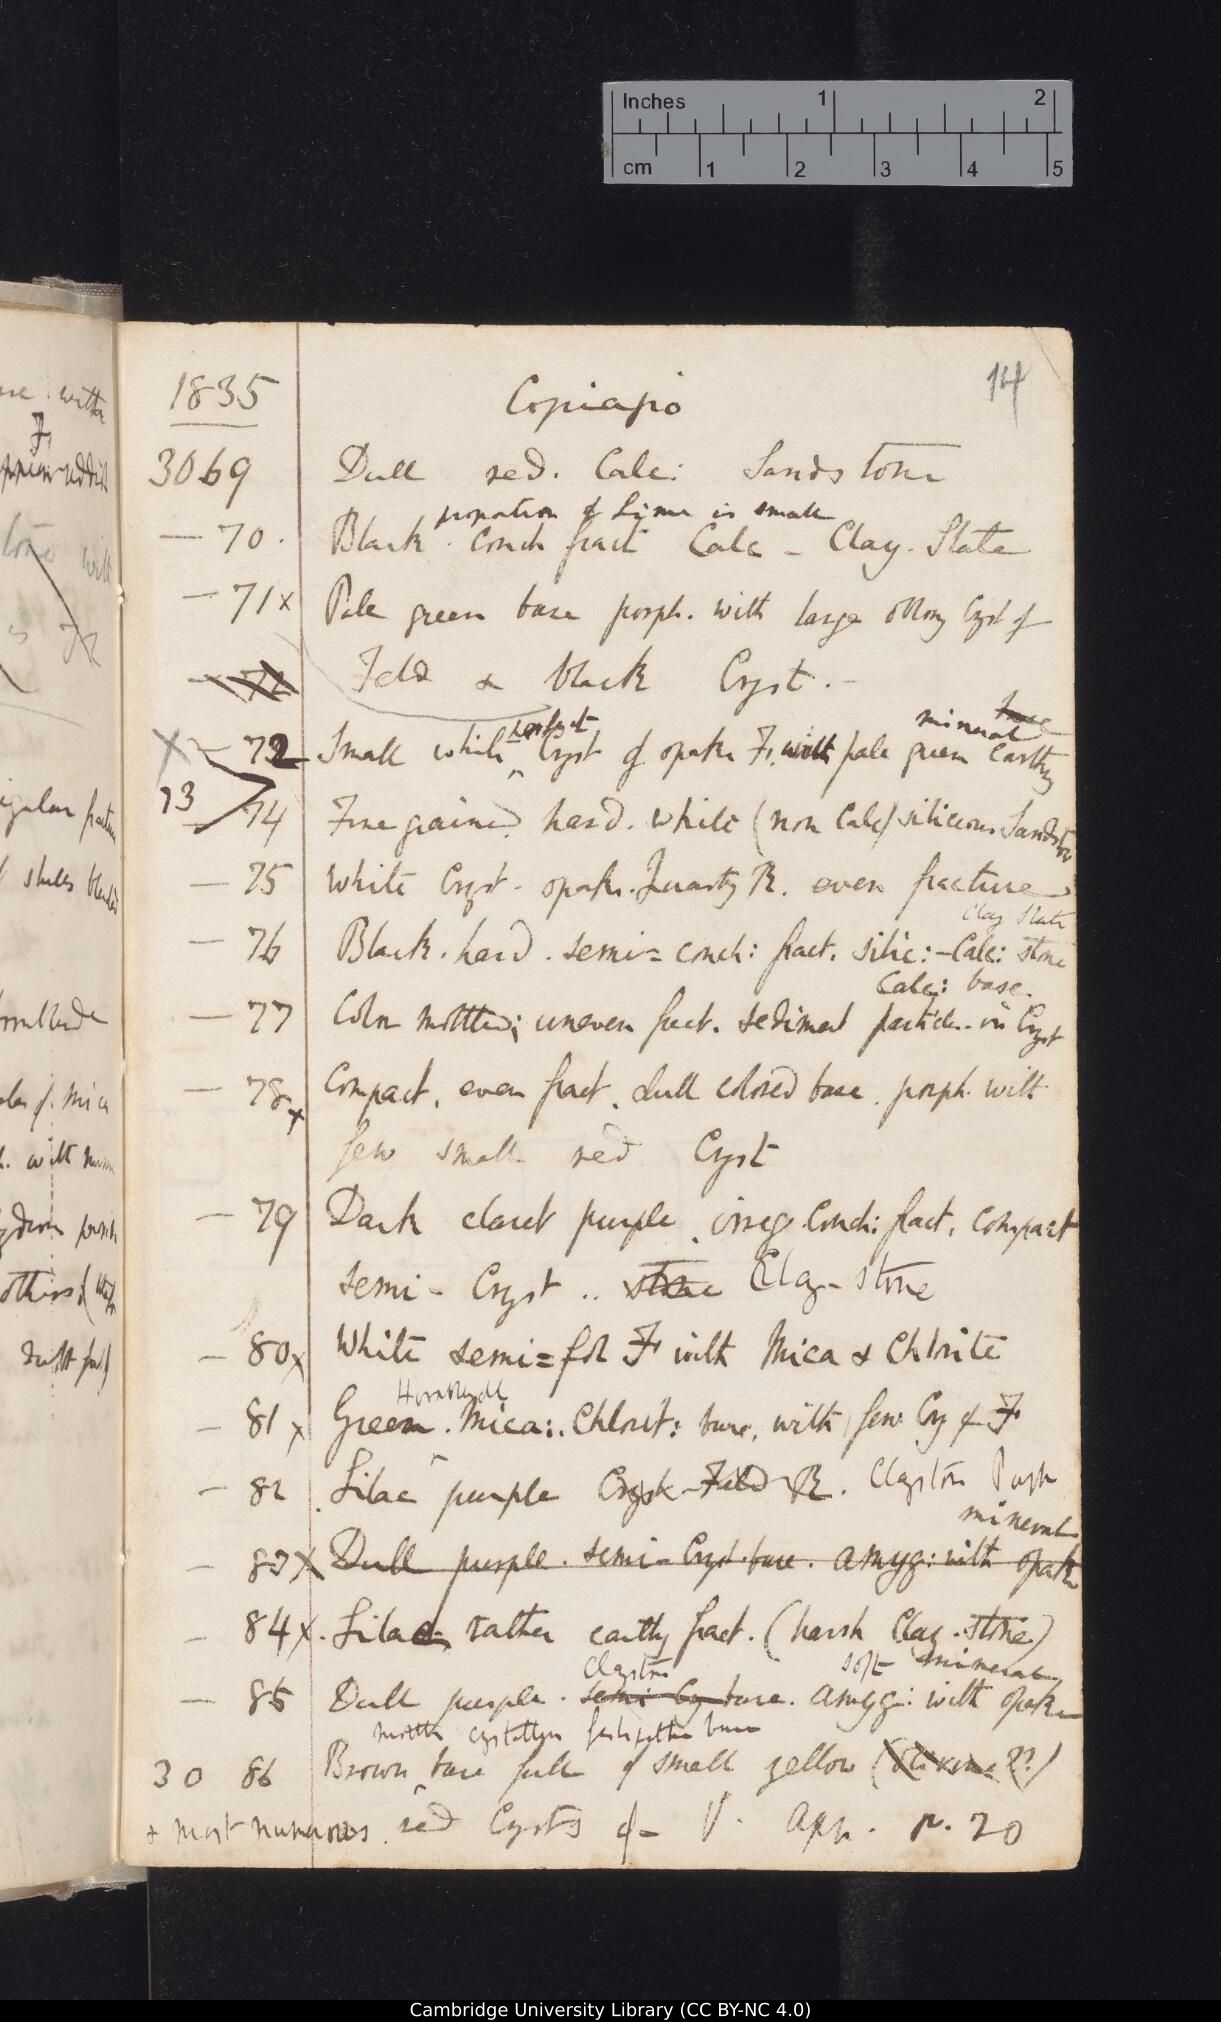 Inches 1 2
cm 1 2 3 4 5
1835 Copiapio 14
3069 Dull red. Calc: Sandstone
proportion of Lime is small
— 70. Black. Conch fract Calc - Clay. Slate
— 71 x Pale green base porph. with large oblong Cryst of
— 72 Feld & black Cryst. -
mineral base
X — 72 Small white perfect Cryst of opake F. with pale green earthy
73 74 Fine grained hard. white (non Calc) siliceous Sandstone
— 75 White Cryst. opake. Quartz R. even fracture
Clay Slate
— 76 Black. hard. semi = conch: fract. silic: - Calc: stone
Calc: base.
— 77 Color mottled; uneven fract. sediment particles. in Cryst
— 78 x Compact, even fract. dull colored base. porph. with
few small red Cryst
— 79 Dark claret purple. irreg Conch: fract. compact
semi - Cryst .. stone Clay - stone
— 80 x White semi = fol F with Mica & Chlorite
Hornblende
— 81 x Green. Mica:. Chlorit: base, with few Cry of F
— 82 . Lilac purple Cryst - Feld R. Claystone Porph
mineral
— 83 X Dull purple. semi - Cryst. base. amyg: with opake
— 84 X. Lilac rather earthy fract. (harsh Clay. stone)
Claystone soft mineral
— 85 Dull purple. semi Cry base. amyg: with opake
crystalline feldspathic base
30 86 Brown base full of small yellow (Olivine??)
& most numerous red Crysts of - V. App. p. 20
Cambridge University Library (CC BY-NC 4.0)